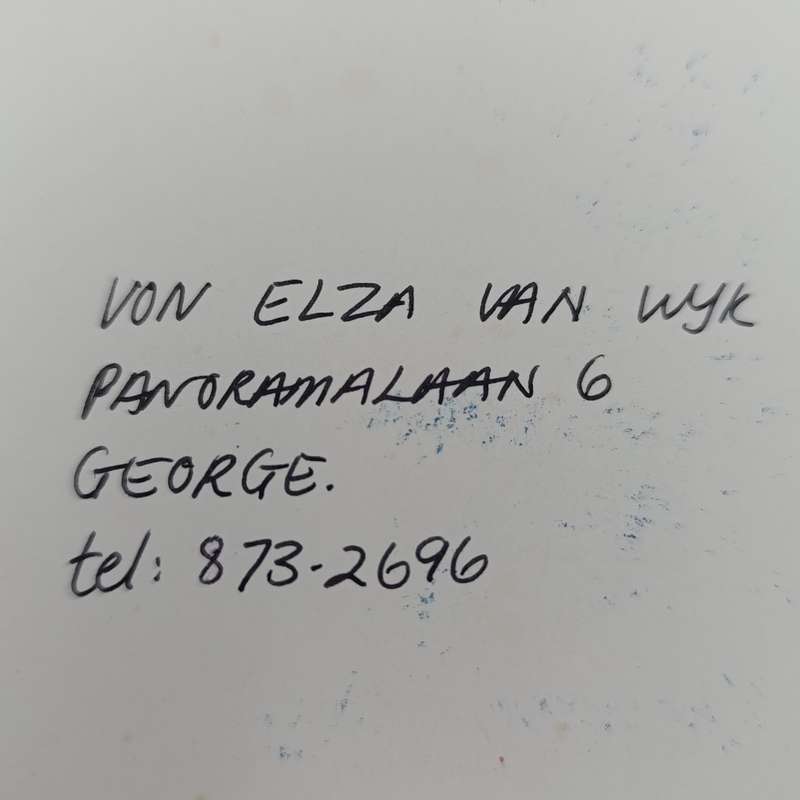 VON ELZA VAN WYK
PANORAMALAAN 6
GEORGE.
tel: 873-2696